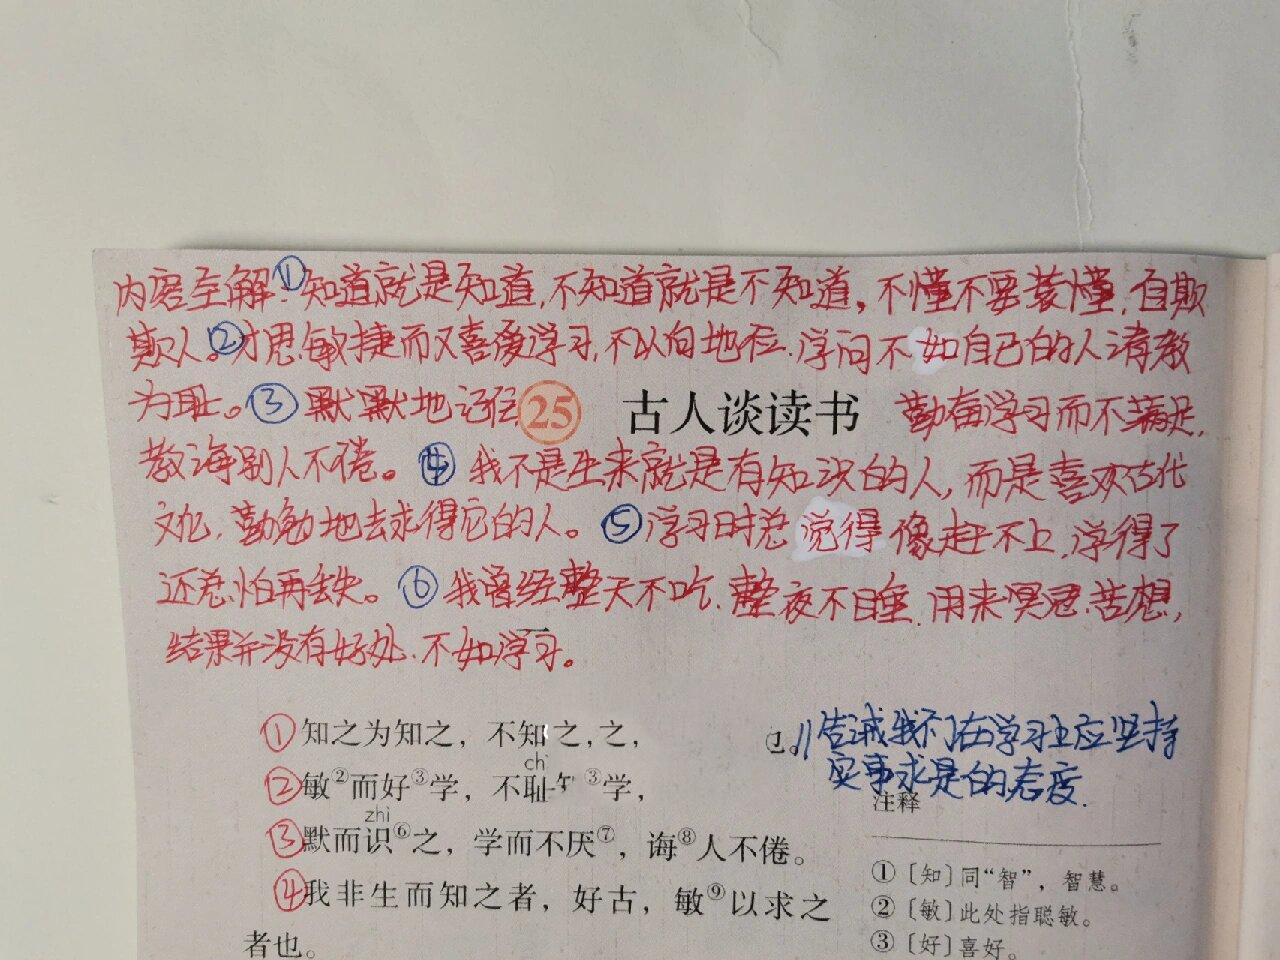 内容全解:①知道就是知道,不知道就是不知道,不懂不要装懂,自欺
欺人。②才思敏捷而又喜爱学习,不以向地位、学问不如自己的人请教
为耻。③默默地记住 25 古人谈读书 勤奋学习而不满足,
教诲别人不倦。④我不是生来就是有知识的人,而是喜欢古代
文化,勤勉地去求得它的人。⑤学习时总觉得像赶不上,学得了
还总怕再丢失。⑥我曾经整天不吃、整夜不睡,用来冥思苦想,
结果并没有好处,不如学习。
①知之为知之,不知 之,之,
已。
告诫我们在学习上应坚持
实事求是的态度.
ch
②敏②而好③学,不耻 ③学,
zhì
③默而识⑥之,学而不厌⑦,诲⑧人不倦。
④我非生而知之者,好古,敏⑨以求之
者也。
注释
①〔知〕同“智”,智慧。
②〔敏〕此处指聪敏。
③〔好〕喜好。